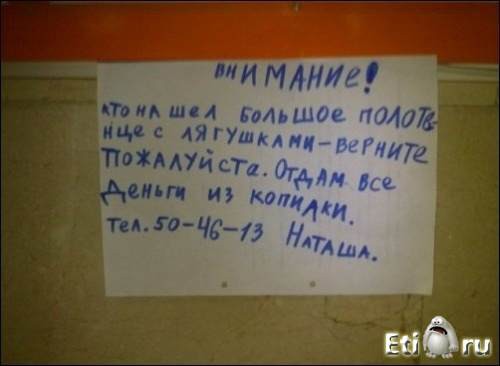 ВНИМАНИЕ!
КТО НА ШЕЛ БОЛЬШОЕ ПОЛОТЕ-
НЦЕ С ЛЯГУШКАМИ-ВЕРНИТЕ
ПОЖАЛУЙСТА. ОТДАМ ВСЕ
ДЕНЬГИ ИЗ КОПИЛКИ.
ТЕЛ. 50-46-13 НАТАША.
Eti ru